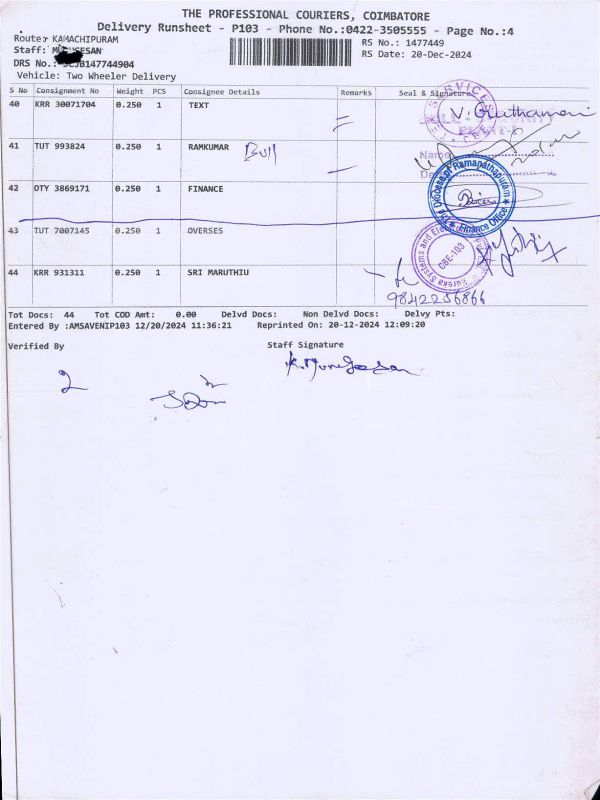 THE PROFESSIONAL COURIERS, COIMBATORE
Delivery Runsheet - P103 - Phone No.:0422-3505555 - Page No.:4
Route: KAMACHIPURAM
RS No.: 1477449
Staff:
RS Date: 20-Dec-2024
DRS No.: SCJB147744904
Vehicle: Two Wheeler Delivery
S No Consignment No Weight PCS Consignee Details Remarks Seal & Signature
40 KRR 30071704 0.250 1 TEXT
41 TUT 993824 0.250 1 RAMKUMAR
Name
42 OTY 3869171 0.250 1 FINANCE
Diocese of Ramanathapuram
Finance Office
43 TUT 7007145 0.250 1 OVERSES
Eureka Systems and
CBE-103
44 KRR 931311 0.250 1 SRI MARUTHIU
9842256866
Tot Docs: 44 Tot COD Amt: 0.00 Delvd Docs: Non Delvd Docs: Delvy Pts:
Entered By :AMSAVENIP103 12/20/2024 11:36:21 Reprinted On: 20-12-2024 12:09:20
Verified By Staff Signature
K. Murugesan